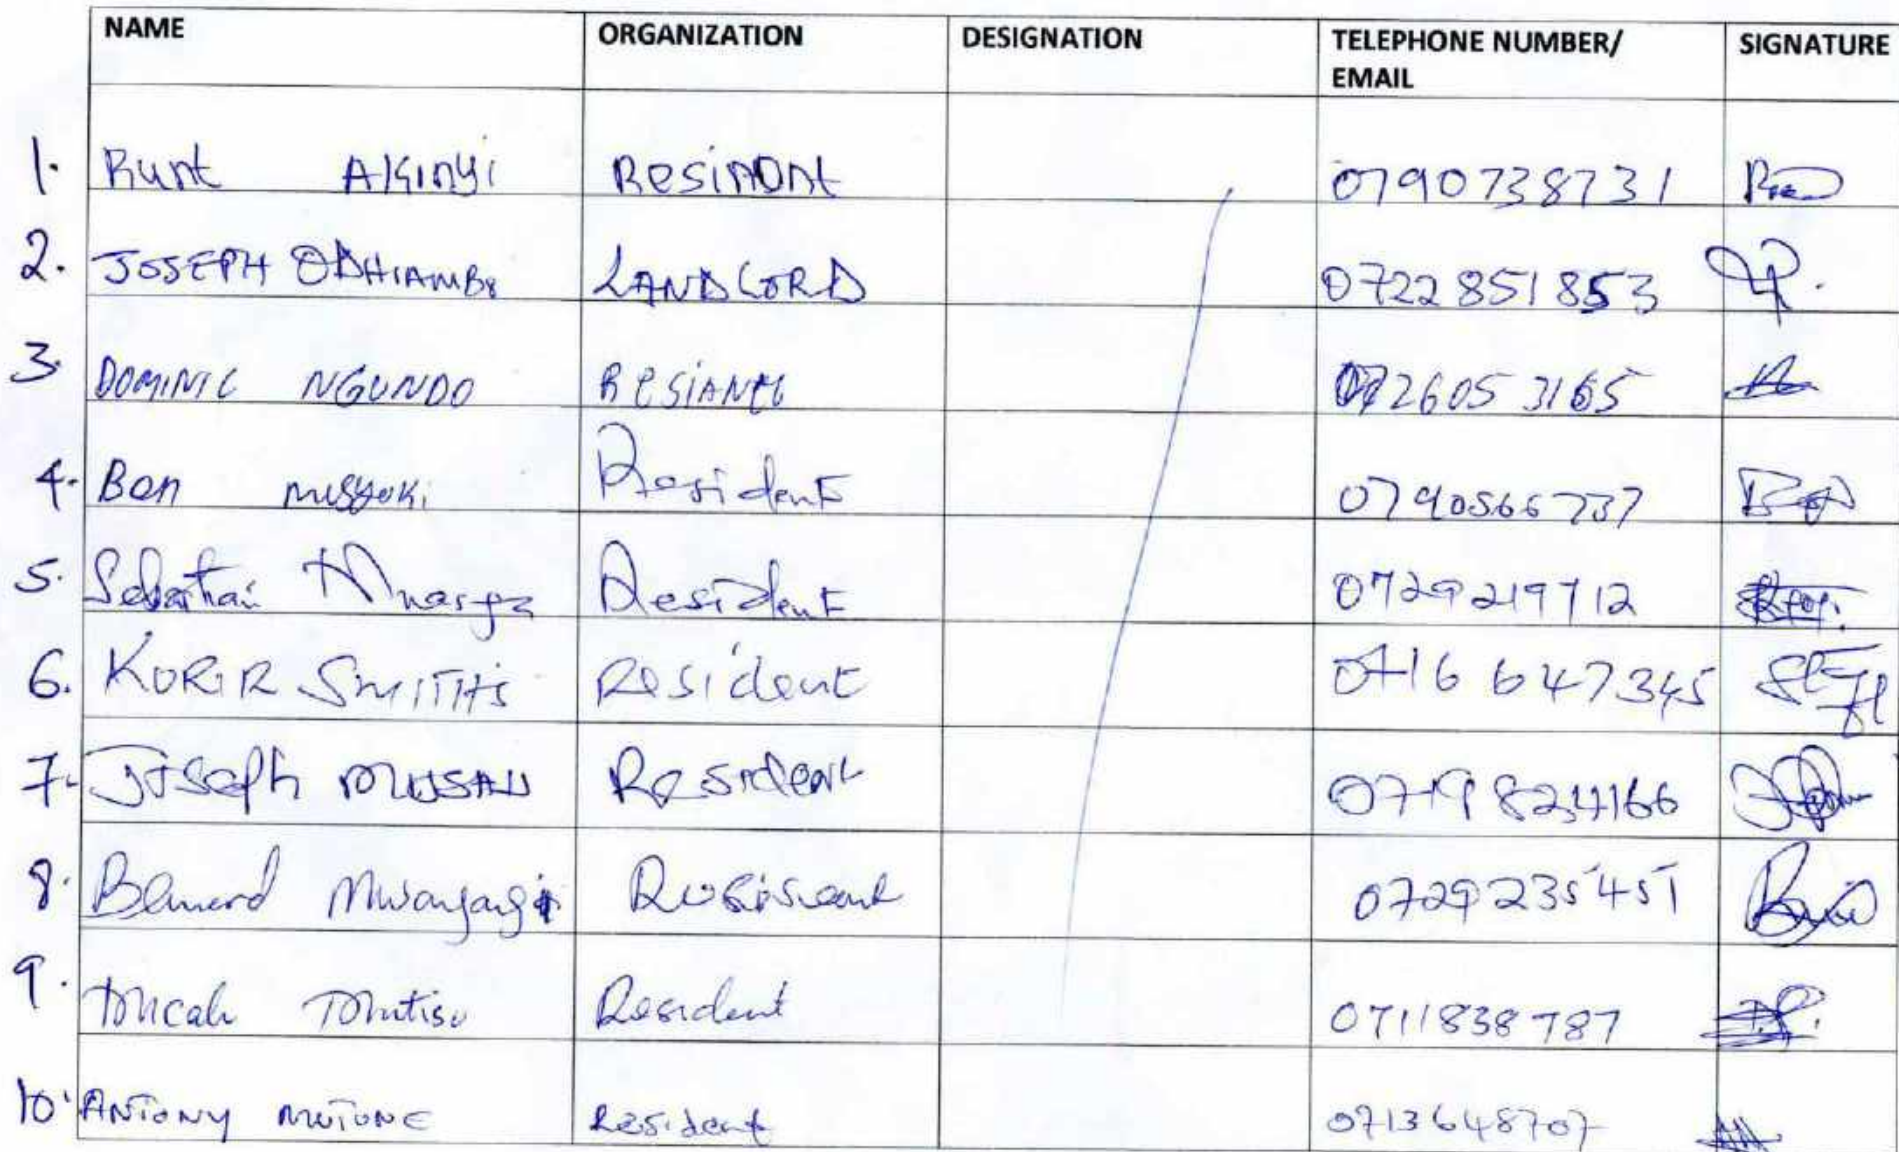 NAME ORGANIZATION DESIGNATION TELEPHONE NUMBER/ EMAIL SIGNATURE
1. Runt AKinyi 0790738731
2. JOSEPH ODHIAMBo LANDLORD 0722 851 853
3. DOMINIC NGUNDO 0726053165
4. Ben musyoki Resident 0790566737
5. Resident 0729219712
6. KORIR SMITHs Resident 0716 647345
7. Joseph MUSAU Resident
8. 0729235451
9. Micah Mutiso Resident 0711838787
10. ANTONY Resident 0713648707